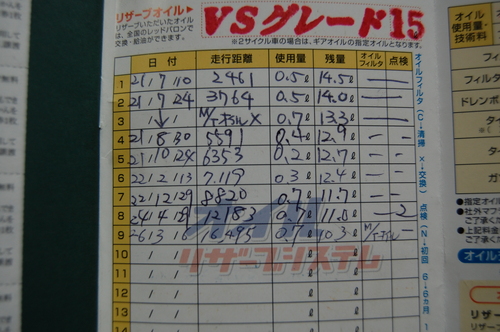 リザーブオイル▶
リザーブいただいたオイル
は、全国のレッドバロンで
交換・給油ができます。
VSグレード15
※2サイクル車の場合は、ギアオイルの指定オイルとなります。
日 付 走行距離 使用量 残量 オイルフィルタ 点検
1 21 7 10 2461 0.5ℓ 14.5ℓ — —
2 21 7 24 3764 0.5ℓ 14.0ℓ — —
3 〃 ↓ 〃 0.7ℓ 13.3ℓ — —
4 21 8 30 5591 0.4ℓ 12.9ℓ — —
5 21 10 24 6353 0.2ℓ 12.7ℓ — —
6 22 2 13 7,119 0.3ℓ 12.4ℓ — —
7 22 12 29 8820 0.7ℓ 11.7ℓ — —
8 24 4 12183 0.7ℓ 11.0ℓ — 2
9 26 3 16495 0.7ℓ 10.3ℓ
10 / / ℓ ℓ
11 / / ℓ ℓ
12 / / ℓ ℓ
13 / / ℓ ℓ
14
オイル
リザーブシステム
オイルフィルタ(C→清掃 ×→交換) 点検(N→初回 6→6ヵ月
オイル
使用量・
技術料
フィ
フィル
ドレンボ
タイ
ター
ガ
●指定オイル
●社外マフ
ご了承く
●上記料金
ご了承くだ
オイル
リザー
リザー